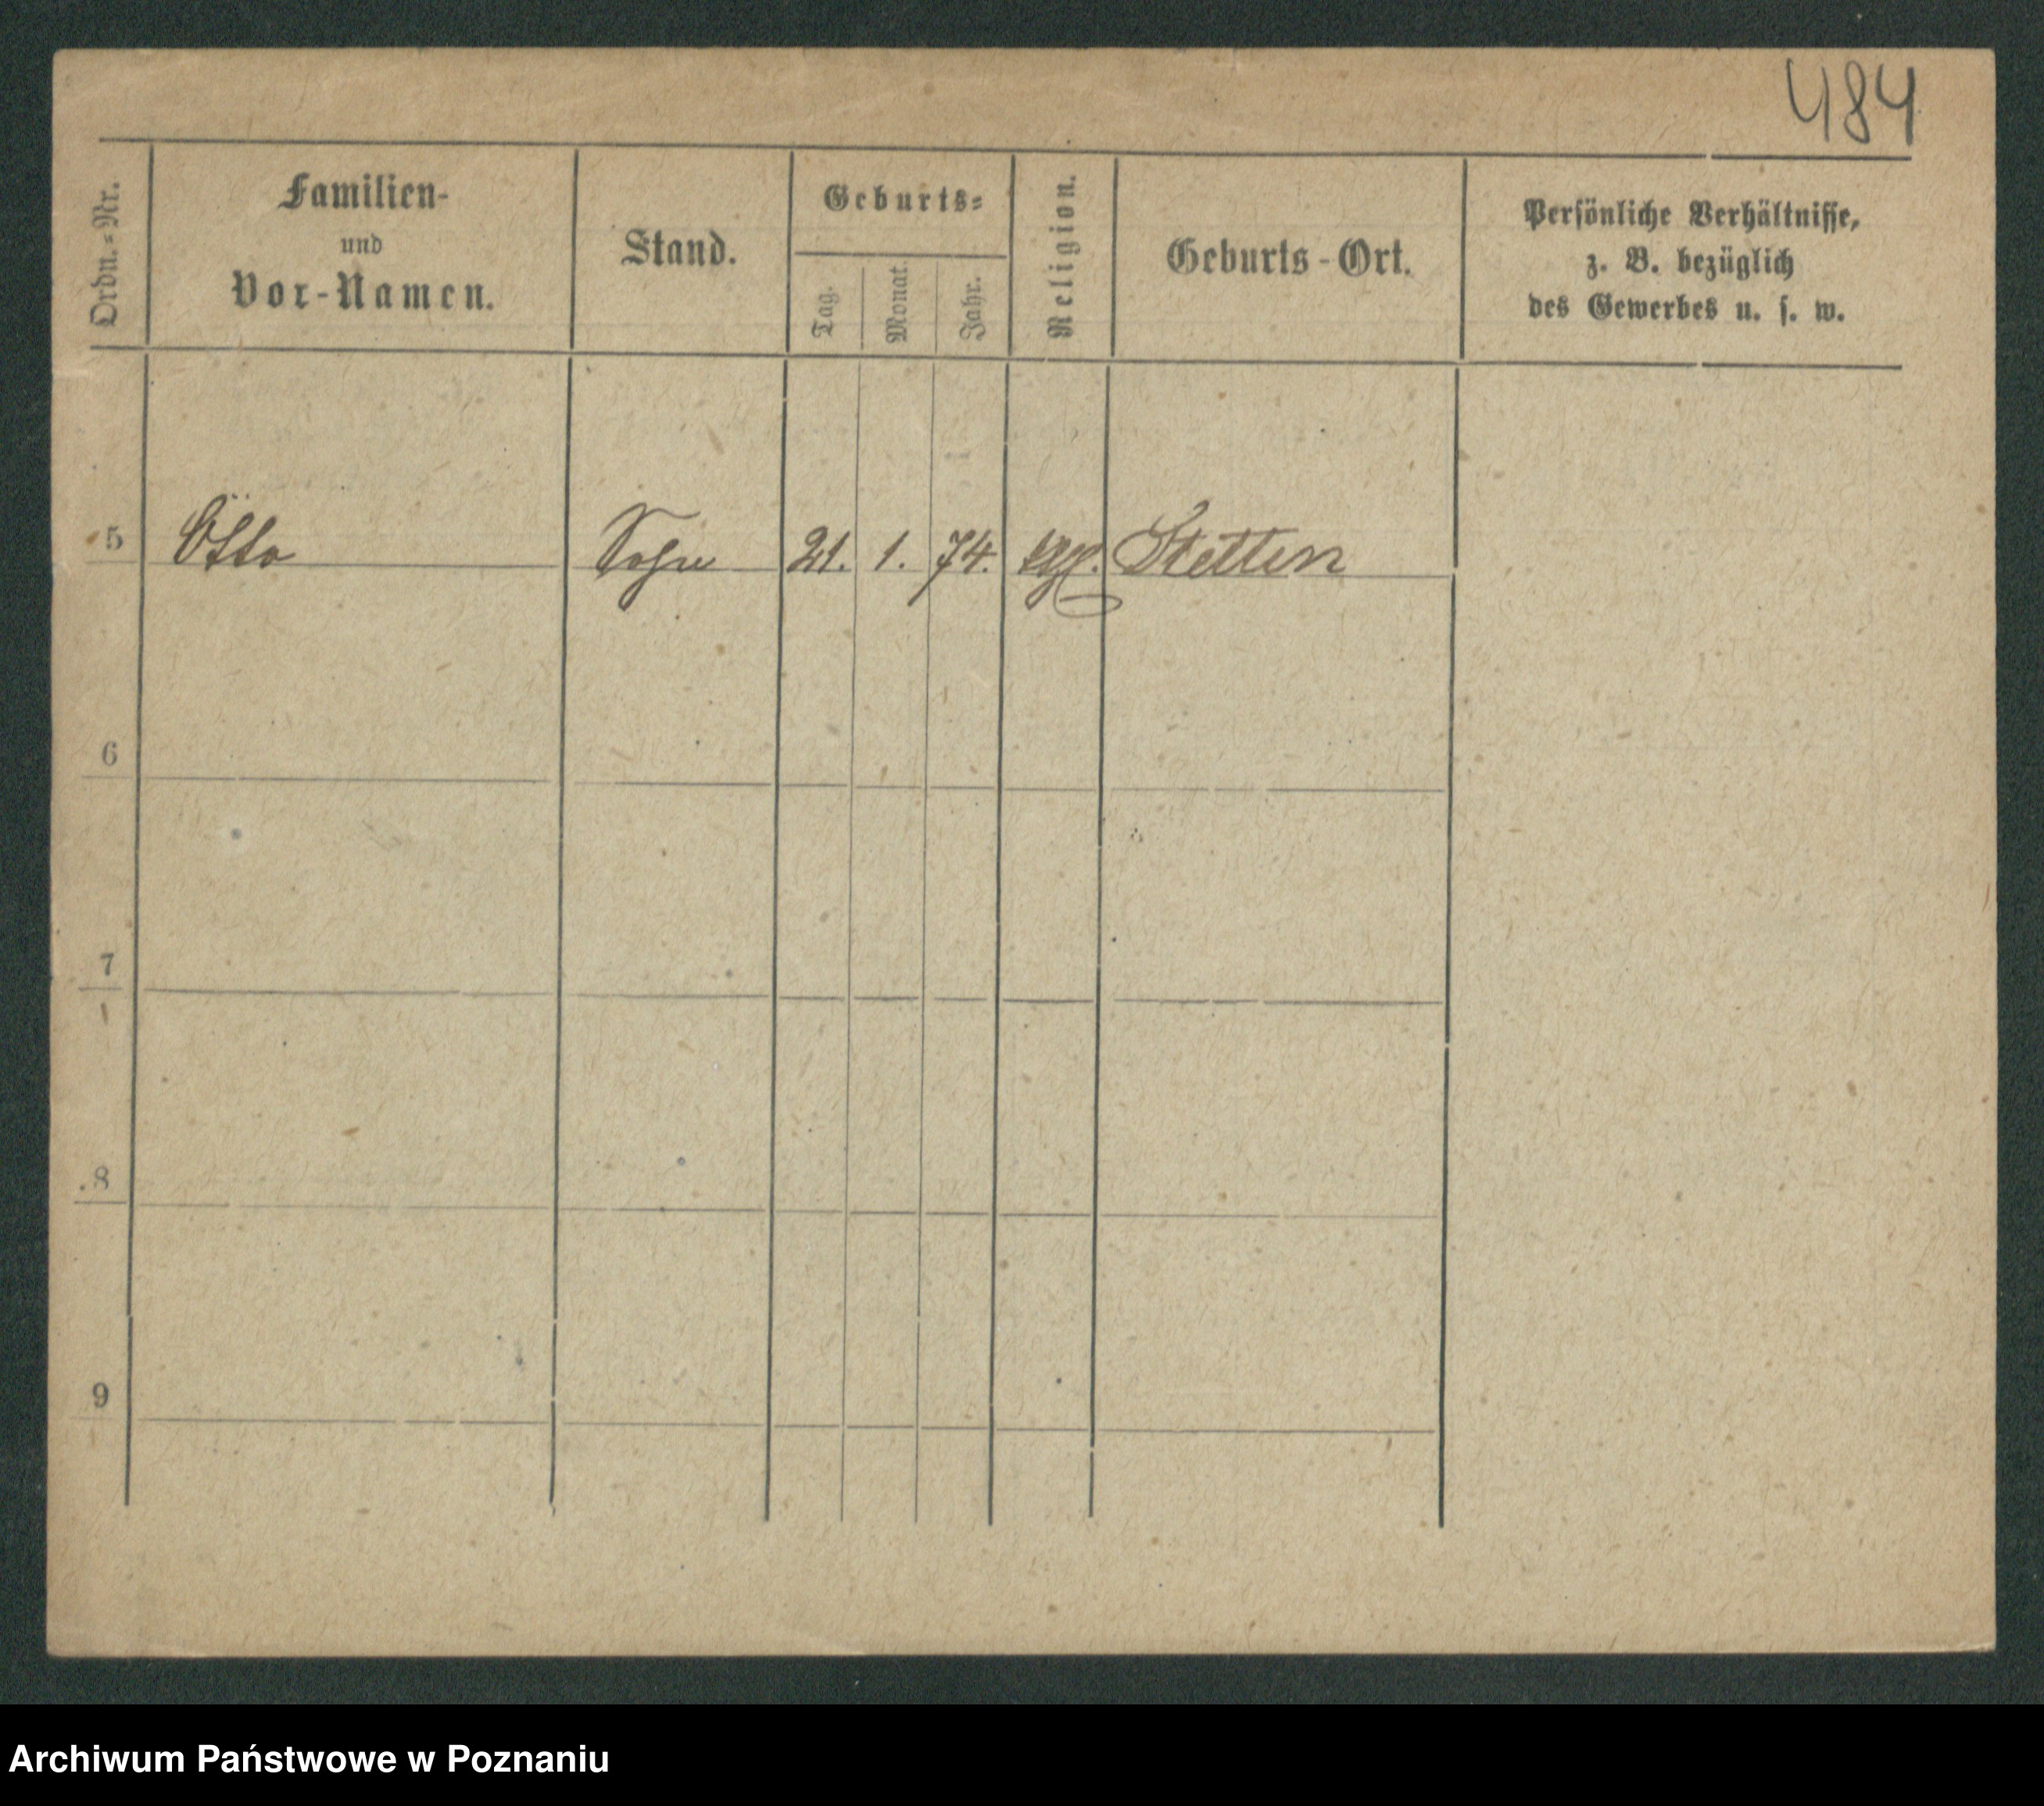 484
Ordn.-Nr.
Familien-
und
Vor-Namen.
Stand.
Geburts-
Tag.
Monat.
Jahr.
Religion.
Geburts-Ort.
Persönliche Verhältnisse,
z. B. bezüglich
des Gewerbes u. s. w.
5 Otto Sohn 21. 1. 74. Stettin
6
7
8
9
Archiwum Państwowe w Poznaniu